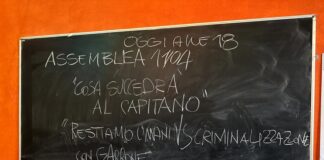 OGGI ALLE 18
ASSEMBLEA 11/04
"COSA SUCCEDRÀ
AL CAPITANO"
"RESTIAMO UMANI VS CRIMINALIZZAZIONE
CON GASTONE